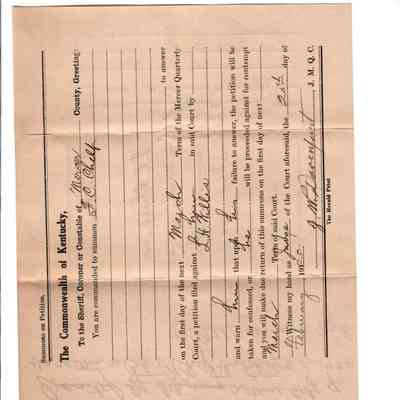 Summons on Petition.
The Commonwealth of Kentucky,
To the Sheriff, Coroner or Constable of Mercer County, Greeting:
You are commanded to summon F. C. Chelf
to answer
on the first day of the next March Term of the Mercer Quarterly
Court, a petition filed against him in said Court by
and warn him that upon his failure to answer, the petition will be
taken for confessed, or he will be proceeded against for contempt
and you will make due return of this summons on the first day of next
March Term of said Court.
Witness my hand as Judge of the Court aforesaid, the day of
February 191
Davenport J. M. Q. C.
The Herald Print